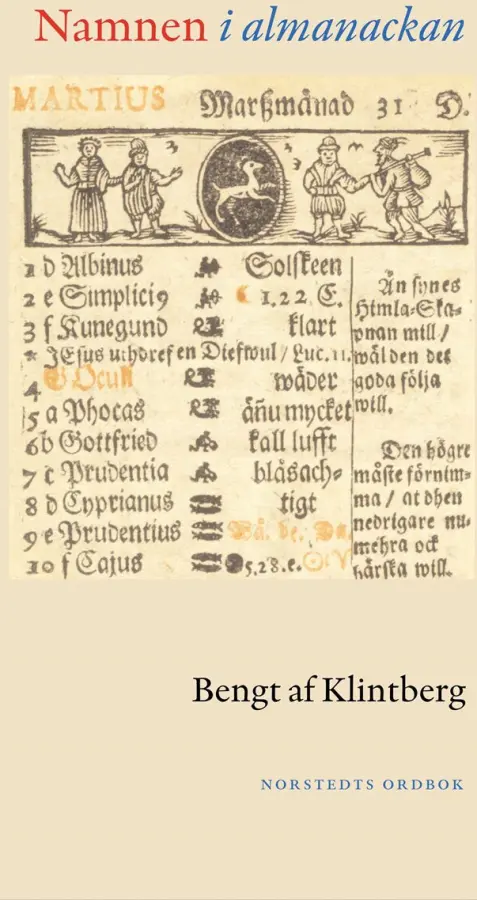 Namnen i almanackan
MARTIUS Marßmånad 31 D.
1 d Albinus Solskeen
2 e Simplici9 1.22 E.
3 f Kunegund klart
* JEsus uthdref en Diefwul / Luc. 11.
4 G Oculi wäder
5 a Phocas äñu mycket
6 b Gottfried kall lufft
7 c Prudentia blåsach-
8 d Cyprianus tigt
9 e Prudentius
10 f Cajus 5.28.e.
Än synes
Himla-Ska-
pnan mill /
wäl den det
goda följa
will.
Den högre
måste förnim-
ma / at dhen
nedrigare nu-
mehra ock
härska will.
Bengt af Klintberg
NORSTEDTS ORDBOK